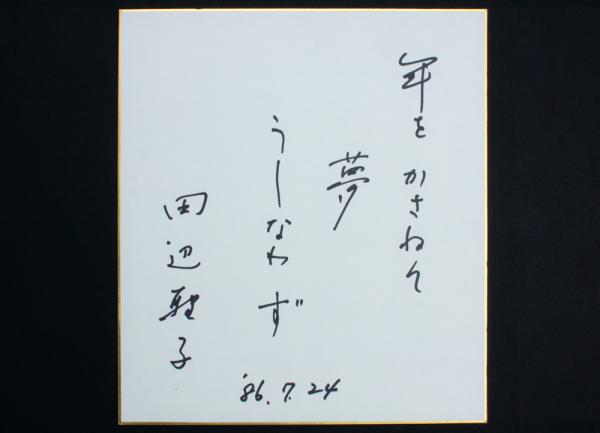 年を かさねて
夢
うしなわず
田辺聖子
'86.7.24